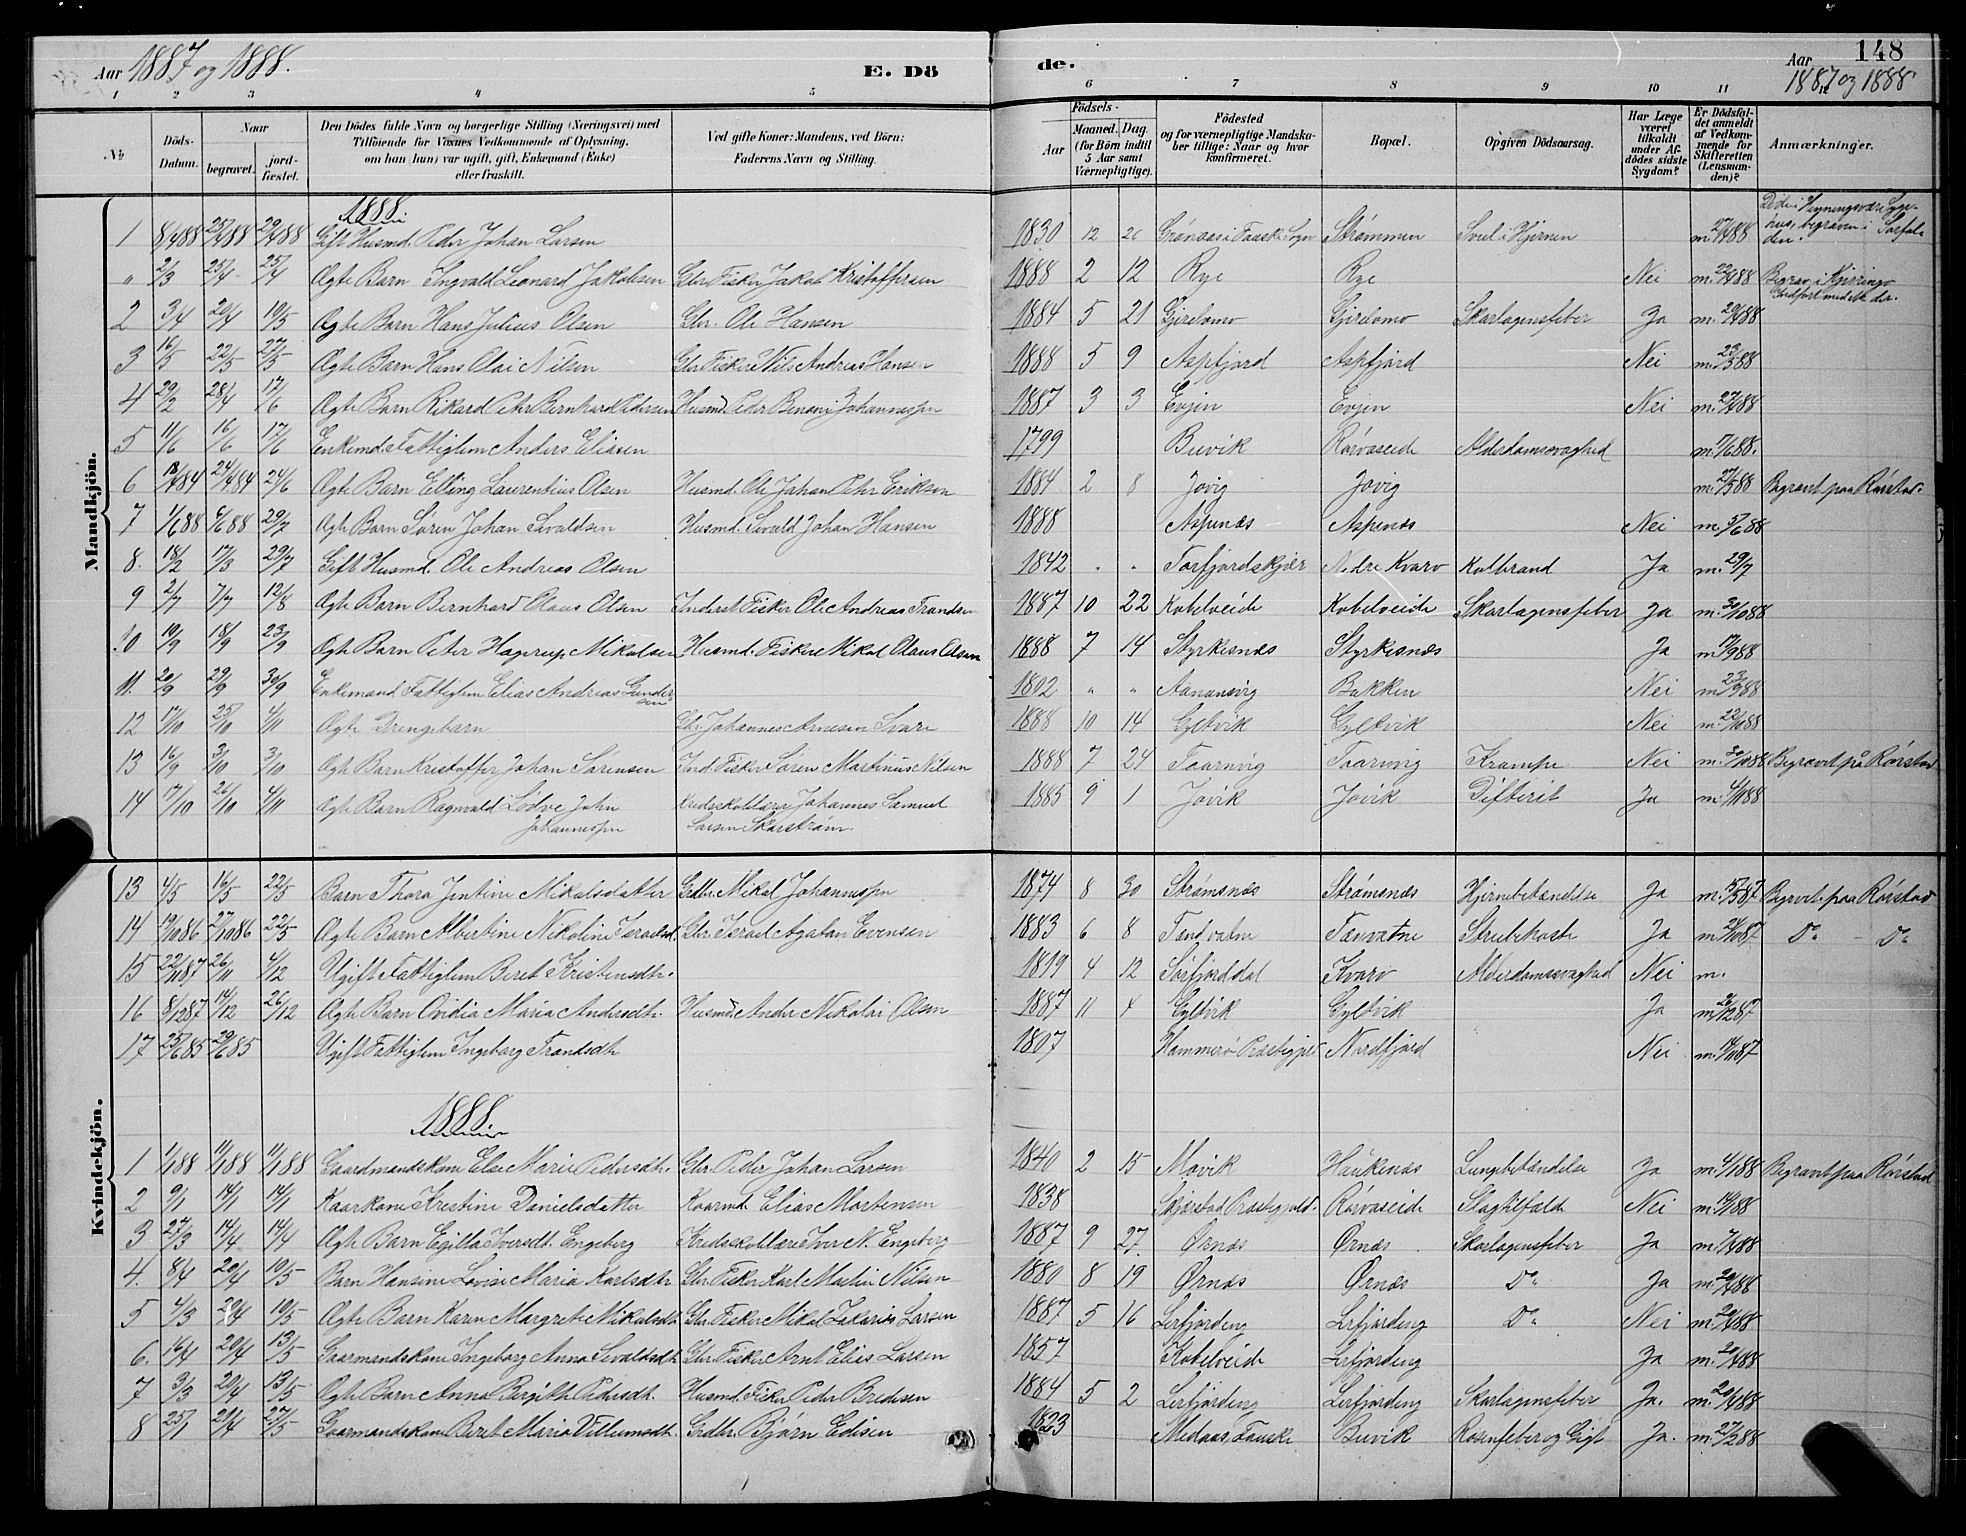 Aar 1887 og 1888.
E. Dö
de.
148
Aar 1887 og 1888
1 2 3 4 5 6 7 8 9 10 11 12
№
Döds-Datum.
Naar begravet. jord-fæstet.
Den Dödes fulde Navn og borgerlige Stilling (Næringsvei) med Tilföiende for Voxnes Vedkommende af Oplysning, om han (hun) var ugift, gift, Enkemand (Enke) eller fraskilt.
Ved gifte Koner: Mandens, ved Börn: Faderens Navn og Stilling.
Födsels-
Aar Maaned. Dag. (for Börn indtil 5 Aar samt Værnepligtige).
Födested og for værnepligtige Mandskaber tillige: Naar og hvor konfirmeret.
Bopæl.
Opgiven Dödsaarsag.
Har Læge været tilkaldt under Afdödes sidste Sygdom?
Er Dödsfaldet anmeldt af Vedkommende for Skifteretten (Lensmanden)?
Anmærkninger.
Mandkjön.
1888.
1 8/4 88 25/4 88 29/4 88 Gift Husmd. Peder Johan Larsen 1830 12 26 Grønaas i Fauske Sogn Strømmen Svul i Hjernen m. 27/4 88
" 2/3 25/4 25/4 Ægte Barn Ingvald Leonard Jakobsen Gbr. Fisker Jakob Kristoffersen 1888 2 12 Rye Rye Nei m. 22/4 88 Begrav. i Kjerringø
2 3/4 20/4 10/5 Ægte Barn Hans Julius Olsen Gbr. Ole Hansen 1884 5 21 Gjerdomo Gjerdomo Skarlagensfeber Ja m. 20/4 88
3 16/5 22/5 27/5 Ægte Barn Hans Olai Nilsen Gbr. Fisker Nils Andreas Hansen 1888 5 9 Aspfjord Aspfjord Nei m. 23/5 88
4 29/2 28/4 17/6 Ægte Barn Rikard Peter Bernhard Pedersen Husmd. Peder Benoni Johannessen 1887 3 3 Evjen Evjen Nei m. 27/4 88
5 11/6 16/6 17/6 Enkemd. Fattiglem Anders Eliasen 1799 Buvik Rørvaseide Alderdomssvaghed m. 17/6 88.
6 18/4 84 24/4 84 24/6 Ægte Barn Elling Laurentius Olsen Husmd. Ole Johan Peter Eriksen 1884 2 8 Jovig Jovig m. 27/5 88 Begravet paa Rørstad.
7 1/6 88 6/6 88 29/7 Ægte Barn Søren Johan Sivaldsen Husmd. Sivald Johan Hansen 1888 Aspenæs Aspenæs Nei m. 5/6 88
8. 18/2 17/3 29/7 Gift Husmd. Ole Andreas Olsen 1842 " " Torfjordskjær Nedre Kvarv Kolbrand Ja m. 29/7
9 2/7 7/7 12/8 Ægte Barn Bernhard Olaus Olsen Inderst Fisker Ole Andreas Trondsen 1887 10 22 Kobelveide Kobelveide Skarlagensfeber Ja m. 30/10 88
10 10/9 18/9 23/9 Ægte Barn Peter Hagerup Mikalsen Husmd. Fisker Mikal Olaus Olsen 1888 7 14 Styrkesnæs Styrkesnæs Ja m. 17/9 88
11. 20/9 29/9 30/9 Enkemand Fattiglem Elias Andreas Gundersen 1802 " " Aanansvig Bakken Nei m. 23/9 88
12 17/10 25/10 4/11 Ægte Drengebarn Gbr. Johannes Arnesen Svare 1888 10 14 Gyltvik Gyltvik Nei m. 22/10 88
13 16/9 3/10 3/10 Ægte Barn Kristoffer Johan Sørensen Ind. Fisker Søren Martinus Nilsen 1888 7 24 Taarnvig Taarnvig Krampe Nei m. 30/10 88 Begravet på Rørstad
14 17/10 26/10 4/11 Ægte Barn Ragnvald Lodve John Johannessen Kredsskollærer Johannes Samuel Larsen Skarstrøm. 1885 9 1 Jovik Jovik Difterit Ja m. 4/11 88
Kvindekjön.
13 4/5 16/5 22/5 Barn Thora Jentine Mikalsdatter Grdbr. Mikal Johannessen 1874 8 30 Strømsnæs Strømsnæs Hjernebetændelse Ja m. 15/5 87 Begravet paa Rørstad
14 19/10 86 27/10 86 22/5 Ægte Barn Albertine Nikoline Israelsd. Gbr. Israel Agatan Evensen 1883 6 8 Tandvatne Tanvatne Strubehoste Ja Do - Do
15 22/11 87 26/11 4/12 Ugift Fattiglem Beret Kristensdtr. 1819 4 12 Sørfjorddal Kvarv Alderdomssvaghed Nei m.
16 8/12 87 14/12 26/12 Ægte Barn Ovidia Maria Andersdtr. Husmd. Anders Nikolai Olsen 1887 11 4 Gyltvik Gyltvik Ja m. 26/12 87
17 25/6 85 29/6 85 Ugift Fattiglem Ingeborg Trondsdtr 1807 Hammerø Præstegjeld Nordfjord Nei m. 14/11 87
1888.
1 1/1 88 11/1 88 11/1 88 Gaardmandskone Else Marie Pedersdtr. Gbr. Peder Johan Larsen 1840 2 15 Movik Haukenæs Lungebetændelse Ja m. 4/1 88 Begravet paa Rørstad
2 9/1 14/1 14/1 Kaarkone Kristine Danielsdatter Kaarmd. Elias Mortensen 1838 Skjærstad Præstegjeld. Rørvaseide Slagtilfælde Nei m. 14/1 88
3 27/3 14/4 14/4 Ægte Barn Egilla Iversdt. Engeberg Kredsskollærer Iver N. Engeberg 1887 9 27. Ørnæs Ørnæs Skarlagensfeber Ja m. 7/4 88
4. 8/4 20/4 10/5 Barn Hansine Lovise Maria Karlsdtr Gbr. Fisker Karl Martin Nilsen 1880 8 19 Ørnæs Ørnæs Do Ja m. 20/4 88
5 4/3 20/4 10/5 Ægte Barn Karen Margrete Mikalsdt. Gbr. Fisker Mikal Zakarias Larsen 1887 5 16 Lerfjording Lerfjording Do Nei m. 20/4 88
6. 16/4 20/4 13/5 Gaarmandskone Ingeborg Anna Sivaldsdtr. Gbr. Fisker Arnt Elias Larsen 1857 Kobelveide Lerfjording Ja m. 20/4 88
7 3/3 20/4 13/5 Ægte Barn Anna Bergithe Pedersdt. Husmd. Fisker Peder Bredesen 1884 5 2 Lerfjording Lerfjording Skarlagensfeber Ja. m. 20/4 88
8 25/1 20/4 27/5 Gaarmandskone Beret Maria Villumsdt. Grdbr. Bjørn Edisen 1823 Medaas, Fauske Buvik Rosenfeber og Gigt Ja. m. 27/2 88